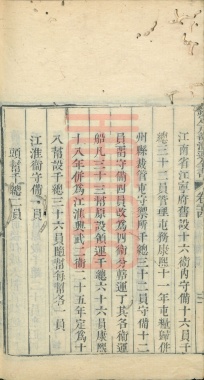 江南省江寧府舊設十六衛內守備十六員千
總三十二員管理屯務康熙十一年屯糧歸併
州縣裁管屯守禦所千總三十二員守備十二
員留守備四員改為四衛分轄運丁其各衛運
船凡三十三幫原設領運千總六十六員康熙
十八年併為江淮興武二衛二十五年定為十
八幫設千總三十六員隨幫每幫各一員
江淮衛守備一員
頭幫千總二員